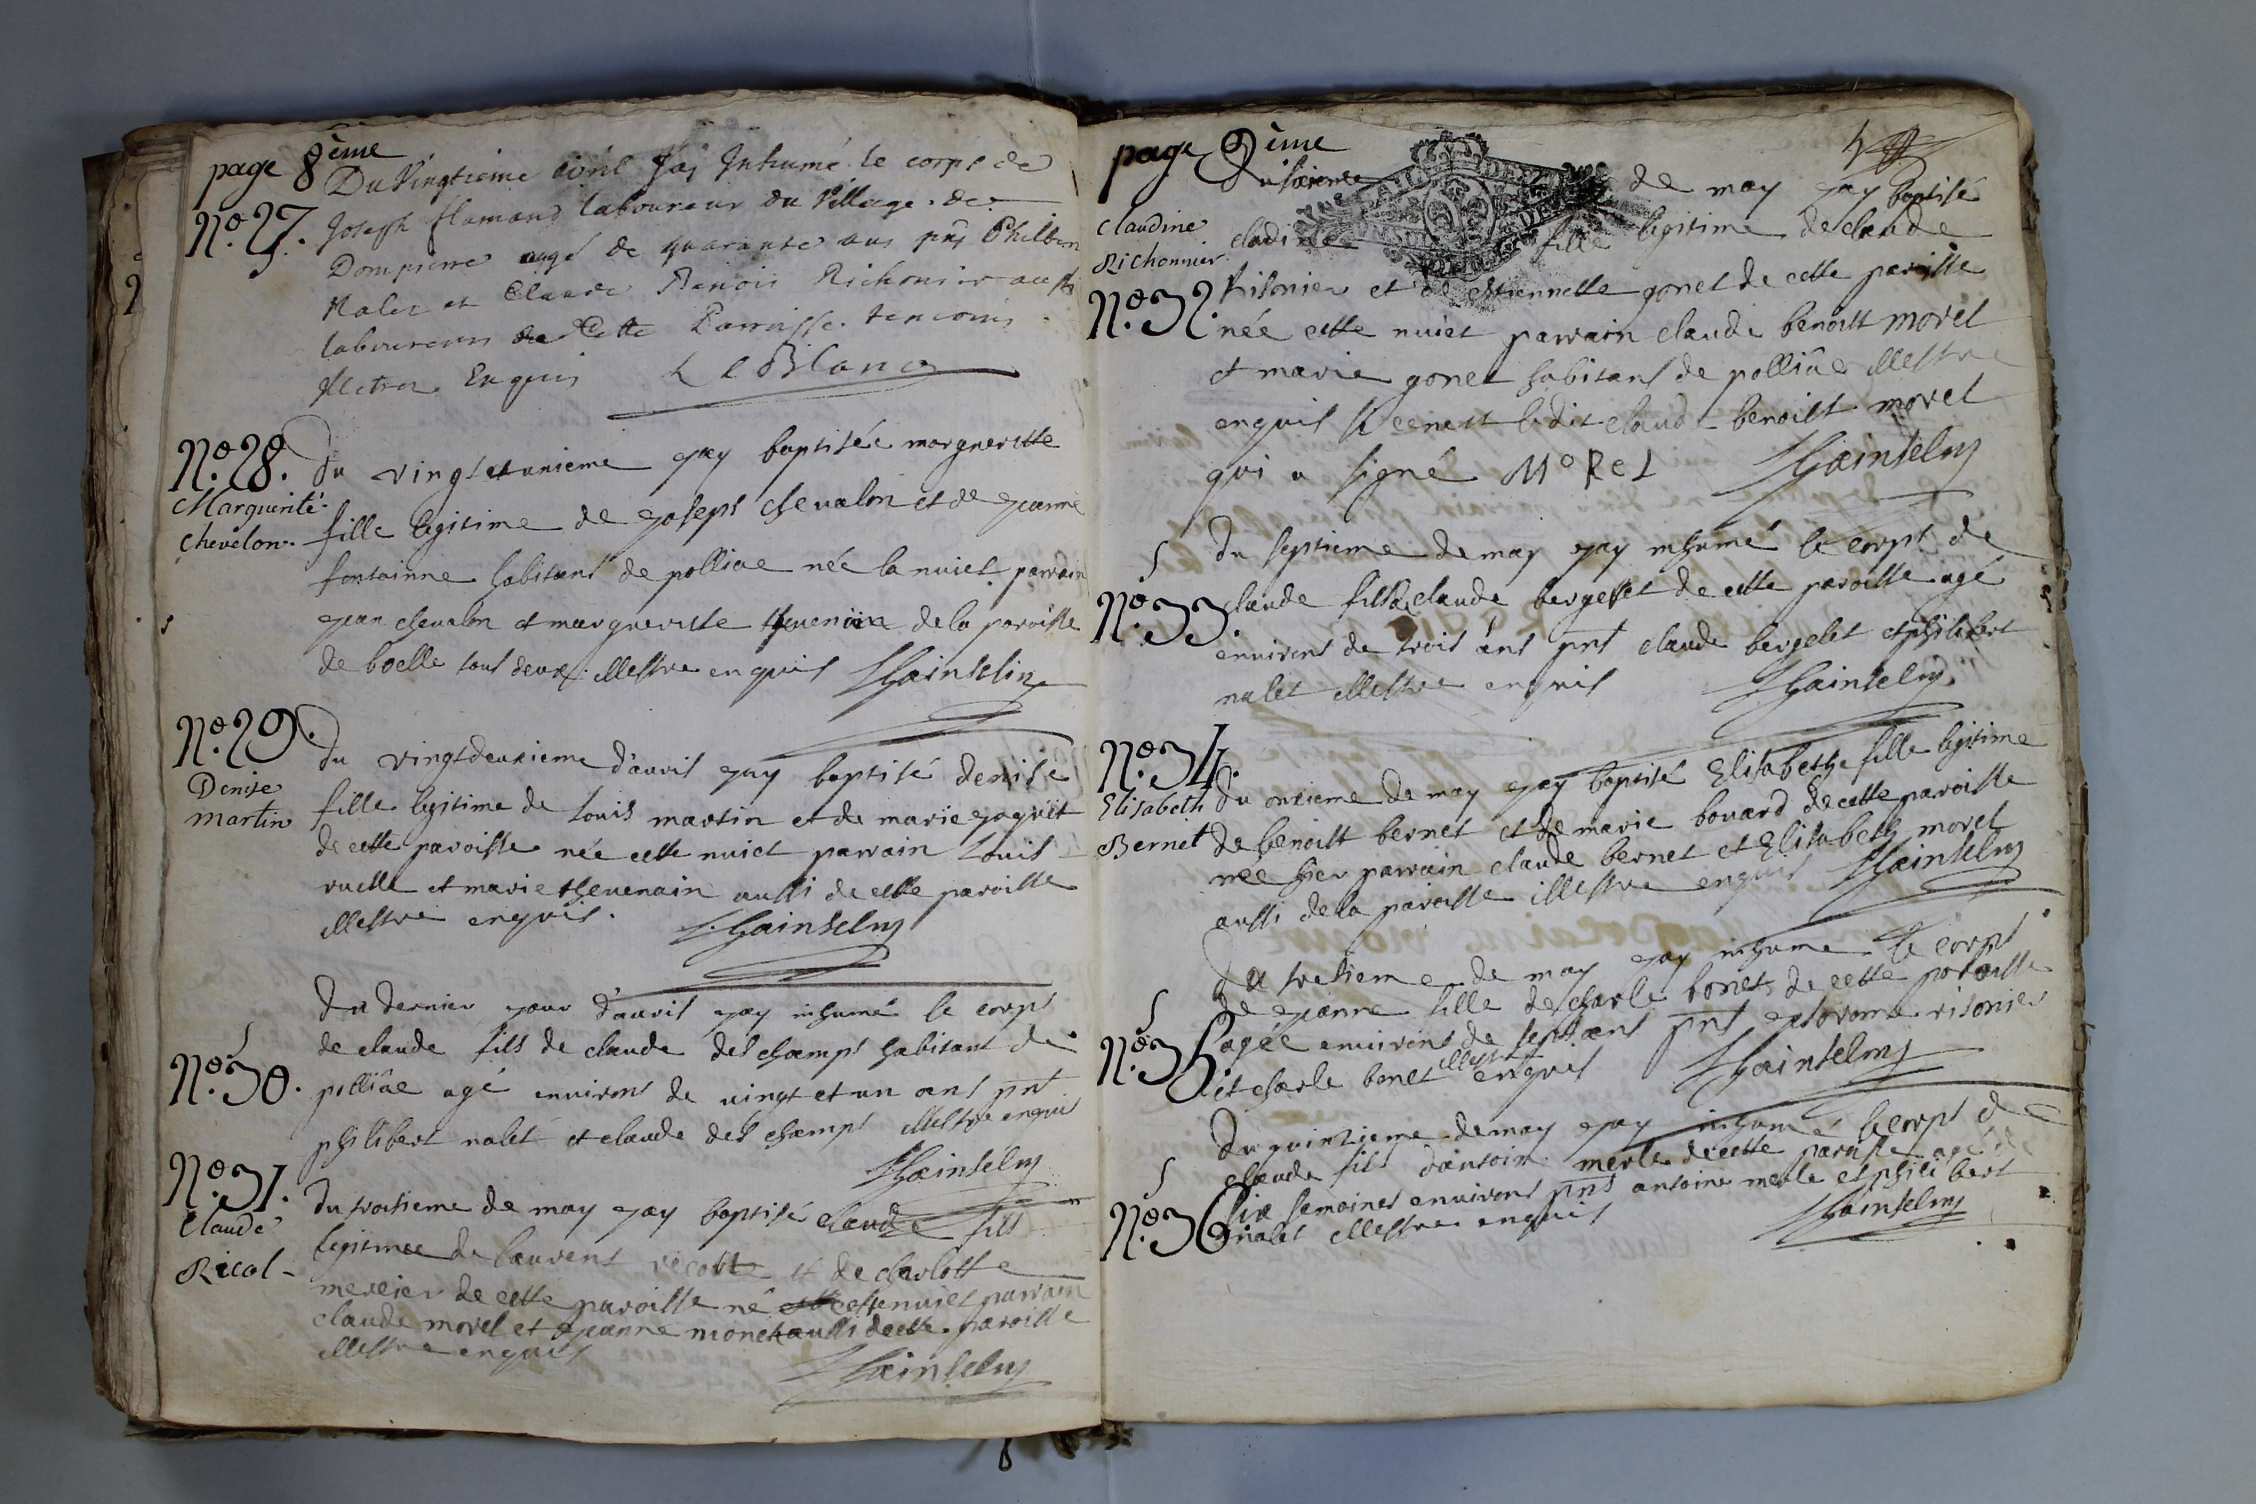 page 8ème
N°. 27.
Du Vingtieme avril Jaÿ Inhumé le corps de
Joseph flamand laboureur du Village de
Dompierre aagé de quarante ans pnts Philibert
Nalet et Claude Benoit Richonier aussi
laboureurs de Cette Parroisse temoins
Illetrez Enquis LeBlanc
N°. 28.
Marguerite
Chevelon.
du vingt et unieme jay baptiseé margueritte
fille legitime de joseph chevalon et de jeanne
fontainne habitans de polliae née la nuict parrain
jean chevalon et margueritte thevenin de la paroisse
de boelle tous deux illestre enquis Ghainselin
N°. 29.
Denise
Martin
du vingtdeuxieme d'avril jay baptisé denise
fille legitime de Louis martin et de marie jaquet
de cette paroisse née cette nuict parrain Louis
ruelle et marie thevenain aussi de cette paroisse
illestre enquis. Ghainselin
S
N°. 30.
du dernier jour d'avril jay inhumé le corps
de claude fils de claude des champs habitant de
polliâe agé environs de vingt et un ans pnt
philibert nalet et claude des champs illestre enquis
Ghainselin
N°. 31.
Claude
Ricol
du troisieme de may jay baptisé claude fils
legitime de laurent recott et de charlotte
mercier de cette paroisse né cette nuict parrain
claude morel et jeanne monet aussi de cette paroisse
illestre enquis
Ghainselin
page 9ème
Claudine
Richonnier
N°. 32.
du sixieme de may jay baptisé
cladine fille legitime de claude
risonier et de estiennette gonet de cette paroisse
née cette nuict parrain claude benoist morel
et marie gonet habitans de polliâe illestre
enquis si ce nest ledit claude benoist morel
qui a signé MoReL Ghainselin
S
N°. 33.
du septieme de may jay inhumé le corps de
claude fils de claude bergeret de cette paroisse agé
environs de trois ans pnt claude bergelet et philibert
nalet illestre enquis Ghainselin
N°. 34.
Elisabeth
Bernet
du onzieme de may jay baptisé Elisabethe fille legitime
de benoist bernet et de marie bonard de cette paroisse
née hier parrain claude bernet et Elisabeth morel
aussi de la paroisse illestre enquis Ghainselin
S
N°. 35.
du tresieme de may jay inhumé le corps
de jeanne fille de charle bonet de cette paroisse
agée environs de sept ans pnt risonier
et charle bonet illestre enquis Ghainselin
S
N°. 36.
du quinzieme de may jay inhumé le corps de
claude fils d'antoine merle de cette paroisse agé de
six semaines environs pnts antoine merle et philibert
nalet illestre enquis Ghainselin